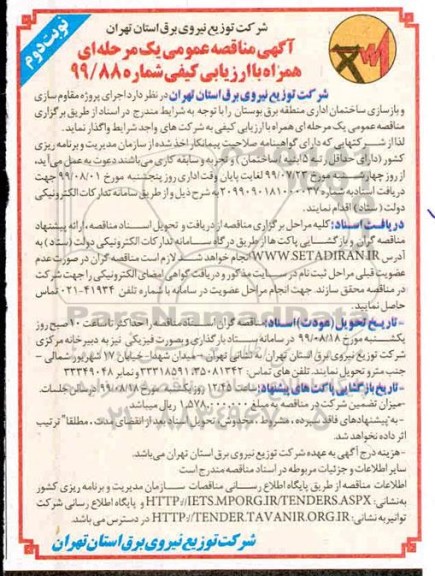 نوبت دوم
شرکت توزیع نیروی برق استان تهران
آگهی مناقصه عمومی یک مرحله‌ای
همراه با ارزیابی کیفی شماره ۹۹/۸۸۰
شرکت توزیع نیروی برق استان تهران در نظر دارد اجرای پروژه مقاوم سازی
و بازسازی ساختمان اداری منطقه برق بوستان را با توجه به شرایط مندرج در اسناد از طریق برگزاری
مناقصه عمومی یک مرحله ای همراه با ارزیابی کیفی به شرکت های واجد شرایط واگذار نماید.
لذا از شرکتهایی که دارای گواهینامه صلاحیت پیمانکار اخذ شده از سازمان مدیریت و برنامه ریزی
کشور (دارای حداقل رتبه ۵ ابنیه (ساختمان)، تجربه و سابقه کاری می‌باشند دعوت به عمل می‌آید،
از روز چهارشنبه مورخ ۹۹/۰۷/۲۳ لغایت پایان وقت اداری روز پنجشنبه مورخ ۹۹/۰۸/۰۱ جهت
دریافت اسناد به شرح ذیل و از طریق سامانه تدارکات الکترونیکی
دولت (ستاد) اقدام نمایند.
دریافت اسناد: کلیه مراحل برگزاری مناقصه از دریافت و تحویل اسناد مناقصه، ارائه پیشنهاد
مناقصه گران و بازگشایی پاکت ها از طریق درگاه سامانه تدارکات الکترونیکی دولت (ستاد) به
آدرس WWW.SETADIRAN.IR انجام خواهد شد. لازم است مناقصه گران در صورت عدم
عضویت قبلی مراحل ثبت نام در سایت مذکور و دریافت گواهی امضای الکترونیکی را جهت شرکت
در مناقصه محقق سازند. جهت انجام مراحل عضویت در سامانه با شماره تلفن ۴۱۹۳۴-۰۲۱ تماس
حاصل نمایید.
- تاریخ تحویل (عودت) اسناد: مناقصه گران اسناد مناقصه را حداکثر تا ساعت ۱۰ صبح روز
یکشنبه مورخ ۹۹/۰۸/۱۸ در سامانه ستاد بارگذاری و بصورت فیزیکی نیز به دبیرخانه مرکزی
شرکت توزیع نیروی برق استان تهران به نشانی تهران - میدان شهدا - خیابان ۱۷ شهریور شمالی -
جنب مترو تحویل نمایند. تلفن های تماس: ۳۵۰۸۱۳۴۲، ۳۳۳۱۸۵۹۱ و نمابر ۳۳۳۴۹۰۴۸
- تاریخ بازگشایی پاکت های پیشنهاد: ساعت ۱۲:۴۵ روز یکشنبه مورخ ۹۹/۰۸/۱۸ در سالن جلسات.
- میزان تضمین شرکت در مناقصه به مبلغ ۱,۵۷۸,۰۰۰,۰۰۰ ریال میباشد
- به پیشنهادهای فاقد سپرده، مشروط، مخدوش، تحویل اسناد بعد از انقضای مدت، مطلقا" ترتیب
اثر داده نخواهد شد.
- هزینه درج آگهی به عهده شرکت توزیع نیروی برق استان تهران می‌باشد.
سایر اطلاعات و جزئیات مربوطه در اسناد مناقصه مندرج است
اطلاعات مناقصه از طریق پایگاه اطلاع رسانی مناقصات سازمان مدیریت و برنامه ریزی کشور
به نشانی: HTTP://IETS.MPORG.IR/TENDERS.ASPX و پایگاه اطلاع رسانی شرکت
توانیر به نشانی: HTTP://TENDER.TAVANIR.ORG.IR در دسترس می باشد.
شرکت توزیع نیروی برق استان تهران
ParsNamadData